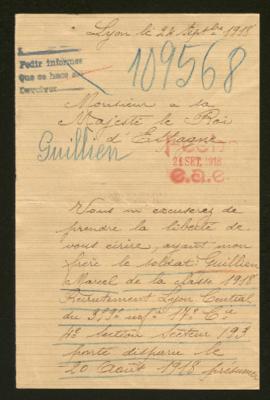 Lyon le 24 Septbre 1918
Pedir informes
Que se hace
Devolver
109568
Monsieur a sa
Majeste le Roi
d'Espagne
Guillien
28 SET. 1918
e.a.e.
Vous m'excuserez de
prendre la liberte de
vous écrire, ayant mon
frère le soldat Guillien
Marcel de la classe 1918
Recrutement Lyon Central
du 319e infie 17e Cie
4e section Secteur 193
porté disparu le
20 Août 1918 présumé